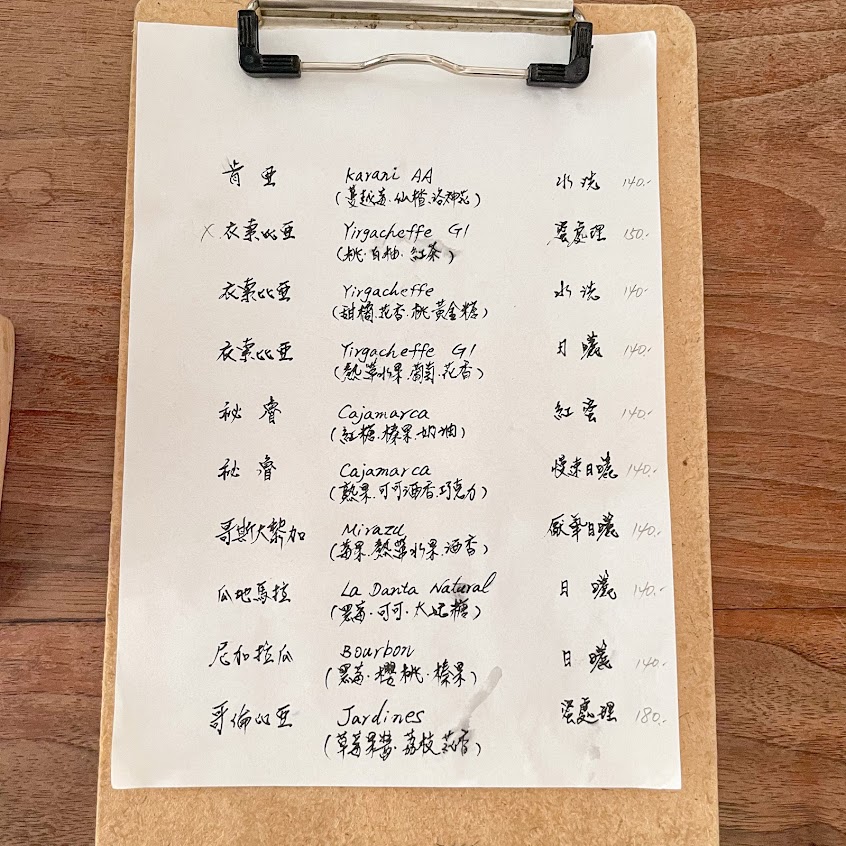 肯亜 Karani AA 水洗 140.-
(蔓越莓.仙楂.洛神花)
X.衣索比亜 Yirgacheffe G1 蜜處理 150.-
(桃.白柚.紅茶)
衣索比亜 Yirgacheffe 水洗 140.-
(甜橘.花香.桃.黃金糖)
衣索比亜 Yirgacheffe G1 日曬 140.-
(熱帶水果.葡萄.花香)
祕魯 Cajamarca 紅蜜 140.-
(紅糖.榛果.奶油)
祕魯 Cajamarca 慢速日曬 140.-
(熟果.可可.酒香.巧克力)
哥斯大黎加 Mirazu 厭氧日曬 140.-
(莓果.熱帶水果.酒香)
瓜地馬拉 La Danta Natural 日曬 140.-
(黑莓.可可.太妃糖)
尼加拉瓜 Bourbon 日曬 140.-
(黑莓.櫻桃.榛果)
哥倫比亜 Jardines 蜜處理 180.-
(草莓果醬.荔枝.花香)